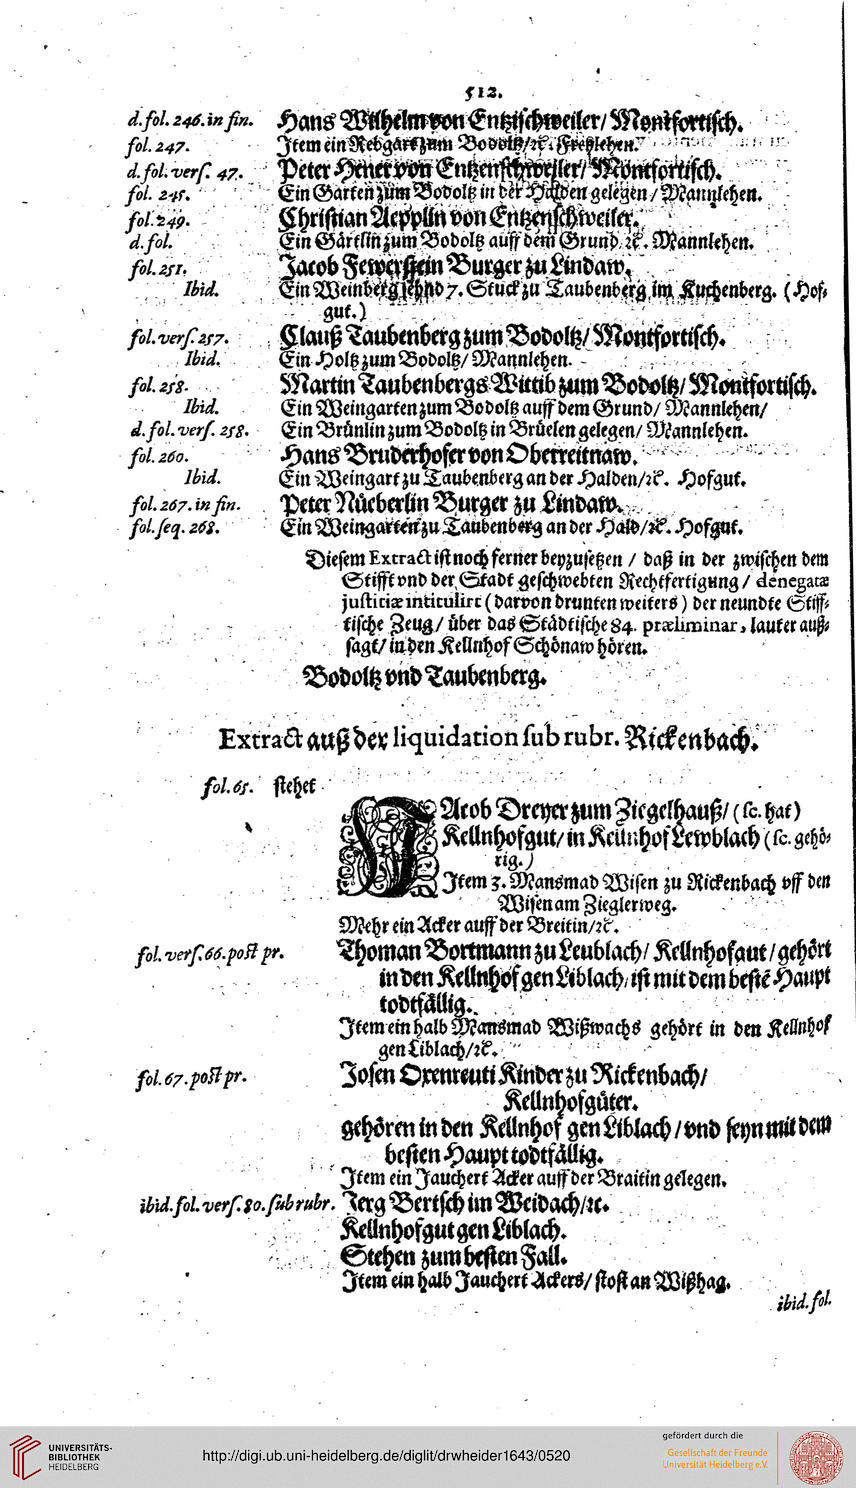 512.
d. fol. 246. in fin. Hans Wilhelm von Entzischweiler/ Montfortisch.
fol. 247. Item ein Rebgart zum Bodoltz/ꝛc. Freylehen.
d. fol. vers. 47. Peter Hener von Entzenschweiler/ Montfortisch.
fol. 245. Ein Garten zum Bodoltz in der Halden gelegen/ Mannlehen.
fol. 249. Christian Aepplin von Entzenschweiler.
d. fol. Ein Gärtlin zum Bodoltz auff dem Grund ꝛc. Mannlehen.
fol. 251. Jacob Fewerstein Burger zu Lindaw.
Ibid. Ein Weinberg 7. Stuck zu Taubenberg im Kuchenberg. (Hof-
gut.)
fol. vers. 257. Clauß Taubenberg zum Bodoltz/ Montfortisch.
Ibid. Ein Holtz zum Bodoltz/ Mannlehen.
fol. 258. Martin Taubenbergs Wittib zum Bodoltz/ Montfortisch.
Ibid. Ein Weingarten zum Bodoltz auff dem Grund/ Mannlehen/
d. fol. vers. 258. Ein Brünlin zum Bodoltz in Brüelen gelegen/ Mannlehen.
fol. 260. Hans Bruderhofer von Oberreitnaw.
Ibid. Ein Weingart zu Taubenberg an der Halden/ꝛc. Hofgut.
fol. 267. in fin. Peter Nüeberlin Burger zu Lindaw.
fol. seq. 268. Ein Weingarten zu Taubenberg an der Hald/ꝛc. Hofgut.
Diesem Extract ist noch ferner beyzusetzen / daß in der zwischen dem
Stifft vnd der Stadt geschwebten Rechtfertigung / denegatæ
justiciæ intitulirt (darvon drunten weiters) der neundte Stiff-
tische Zeug/ über das Städtische 84. præliminar, lauter auß-
sagt/ in den Kellnhof Schönaw hören.
Bodoltz vnd Taubenberg.
Extract auß der liquidation sub rubr. Rickenbach.
fol. 65. stehet
JAcob Dreyer zum Ziegelhauß/ (sc. hat)
Kellnhofgut/ in Kellnhof Lewblach (sc. gehö-
rig.)
Item 3. Mansmad Wisen zu Rickenbach vff den
Wisen am Zieglerweg.
Mehr ein Acker auff der Breitin/ꝛc.
fol. vers. 66. post pr. Thoman Bortmann zu Leublach/ Kellnhofgut / gehört
in den Kellnhof gen Liblach/ ist mit dem bestẽ Haupt
todtfällig.
Item ein halb Mansmad Wißwachs gehört in den Kellnhof
gen Liblach/ꝛc.
fol. 67. post pr. Josen Oxenreuti Kinder zu Rickenbach/
Kellnhofgüter.
gehören in den Kellnhof gen Liblach / vnd seyn mit dem
besten Haupt todtfällig.
Item ein Jauchert Acker auff der Braitin gelegen.
ibid. fol. vers. 80. sub rubr. Jerg Bertsch im Weidach/ꝛc.
Kellnhofgut gen Liblach.
Stehen zum besten Fall.
Item ein halb Jauchert Ackers/ stost an Wißhag.
ibid. fol.
UNIVERSITÄTS-
BIBLIOTHEK
HEIDELBERG
http://digi.ub.uni-heidelberg.de/diglit/drwheider1643/0520
gefördert durch die
Gesellschaft der Freunde
Universität Heidelberg e.V.